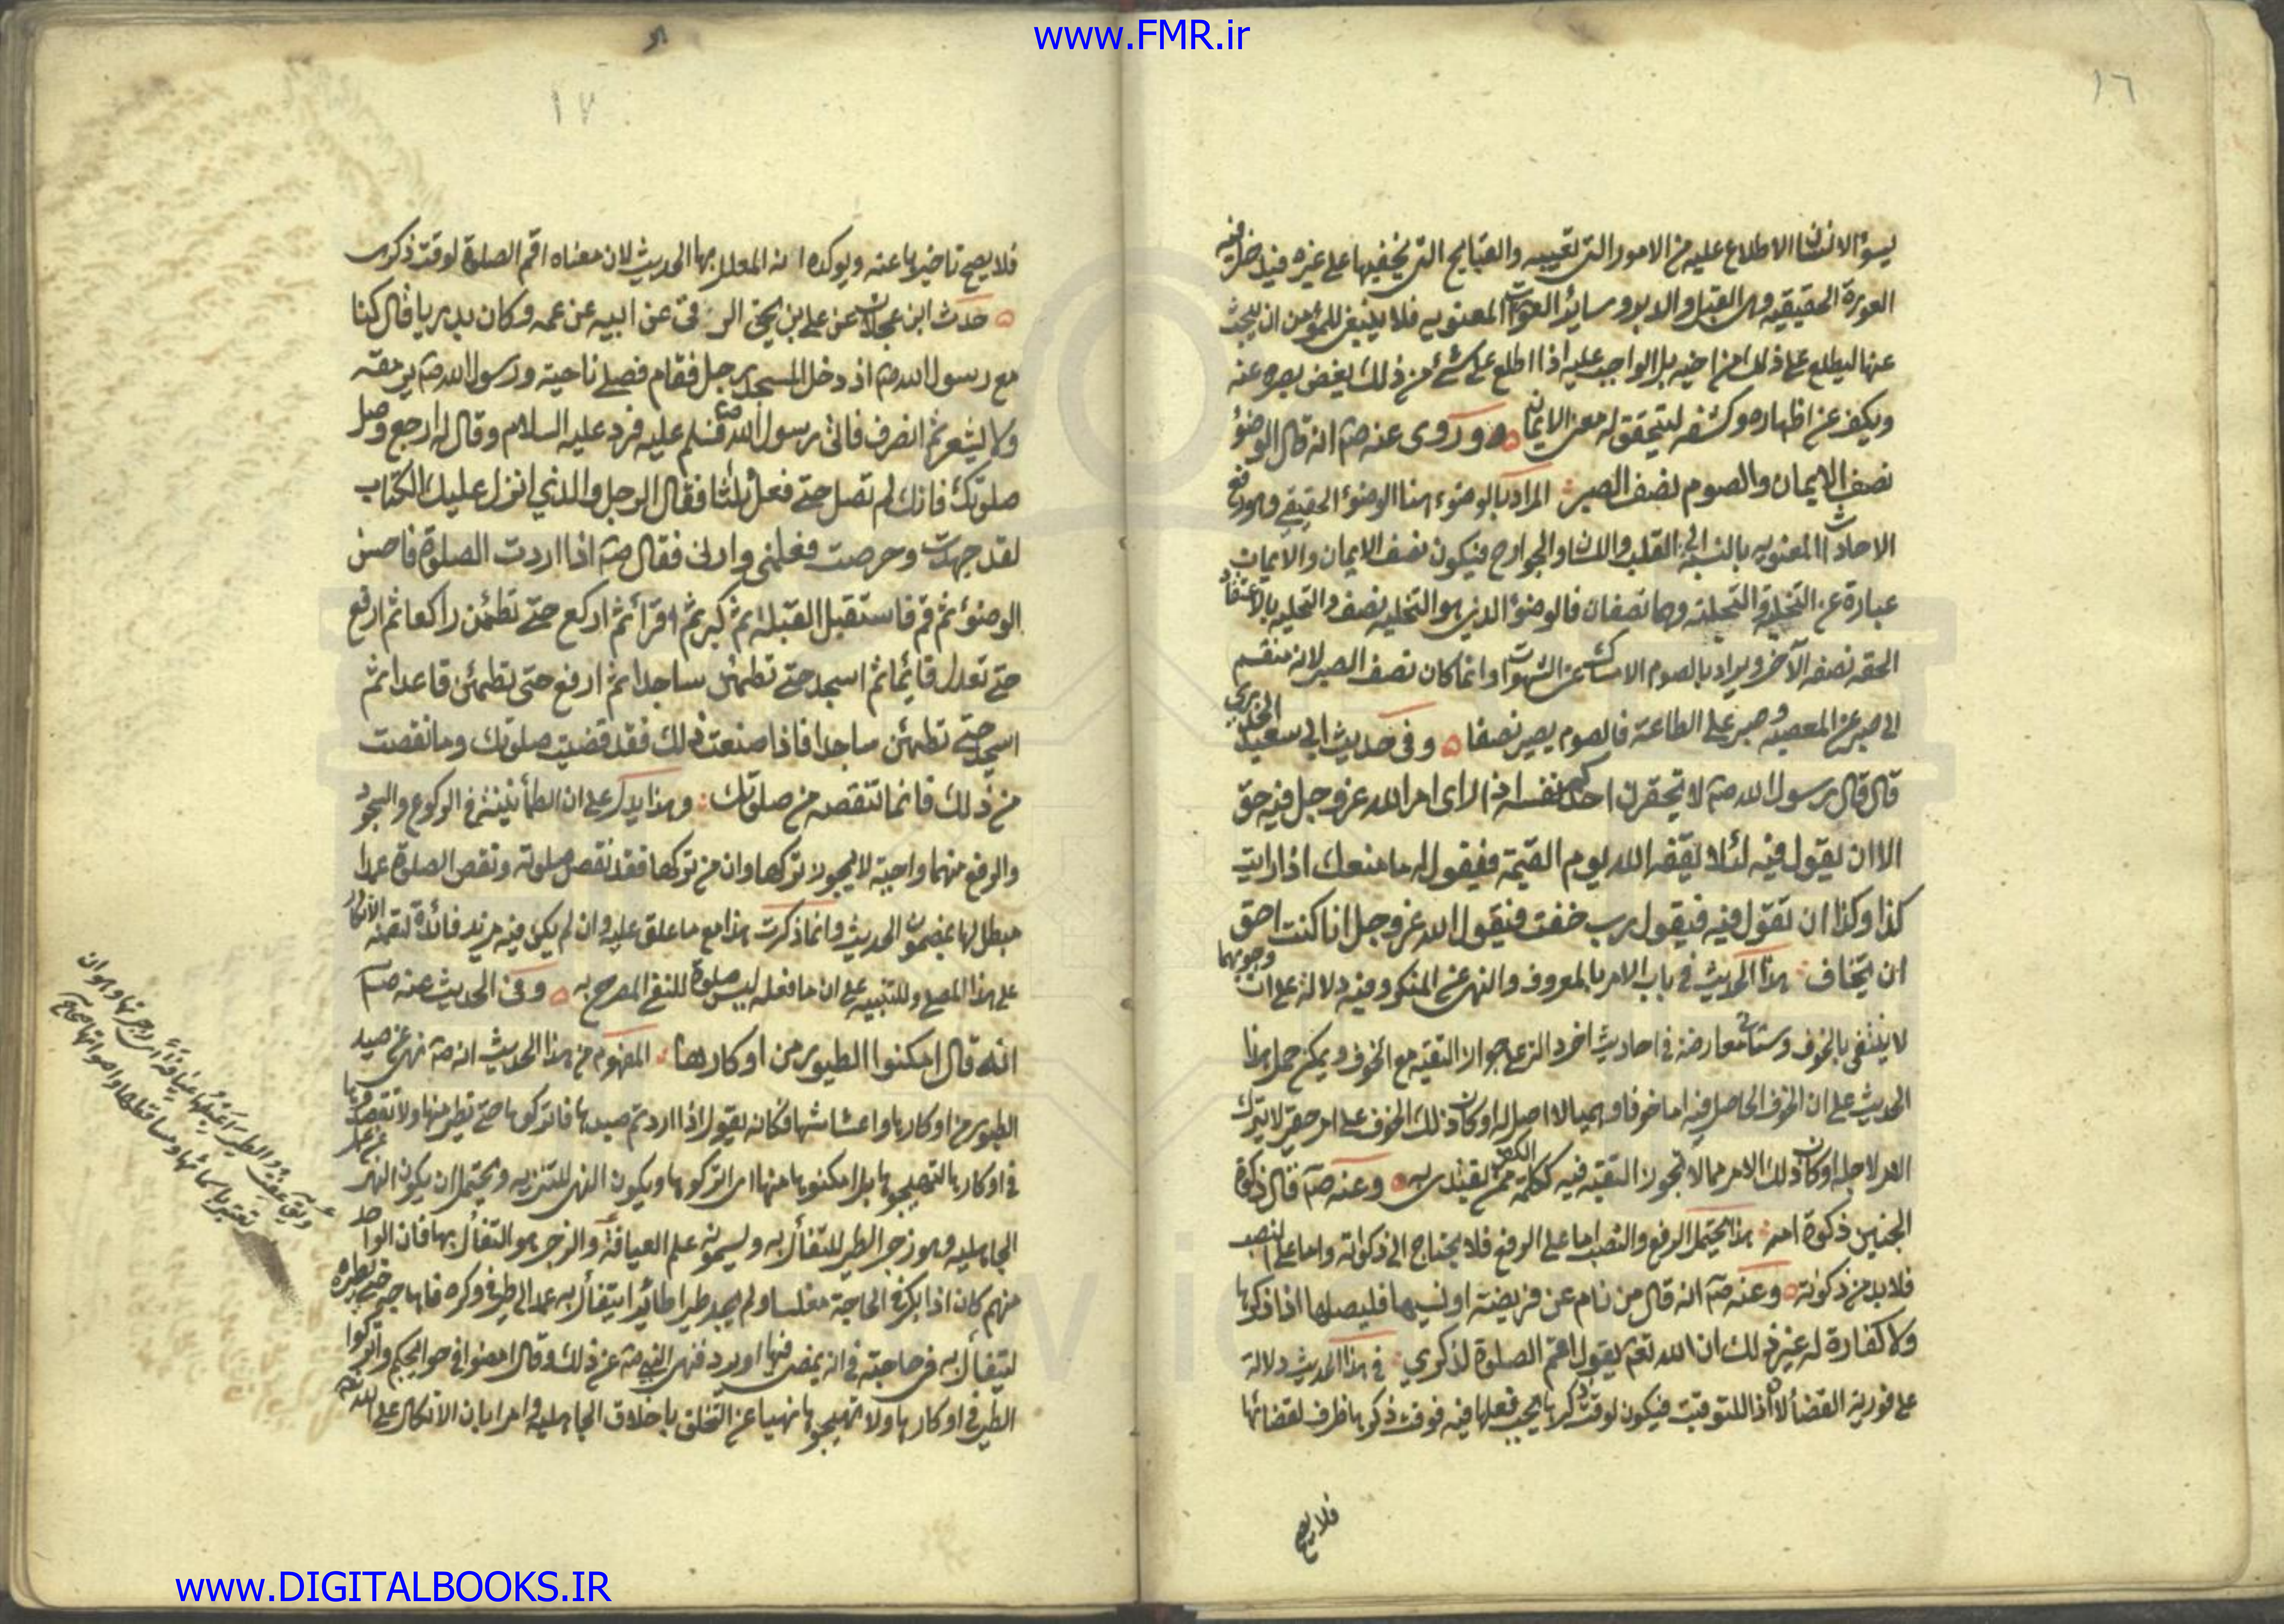 www.FMR.ir
١٦
يسوء الانسان الاطلاع عليه من الامور التى تعيبه والقبايح التى يخفيها على غيره فيدخل فيه
العورة الحقيقيه وهى القبل والدبر وساير العورات المعنويه فلا ينبغى للمؤمن ان يبحث
عنها ليطلع على ذلك من اخيه بل الواجب عليه اذا اطلع على شئ من ذلك يغض بصره عنه
ويكف عن اظهاره وكشفه لتحقق له معنى الايمان وروى عنه صم انه قال الوضوء
نصف الايمان والصوم نصف الصبر المراد بالوضوء هنا الوضوء الحقيقى وهو رفع
الاحداث المعنويه بالنسبة الى القلب واللسان والجوارح فيكون نصف الايمان والايمان
عبارة عن التخلية والتحلية وهما نصفان فالوضوء الذى هو التخليه نصف والتحليه بالاعتقاد
الحقه نصفه الآخر ويراد بالصوم الامساك عن الشهوات وانما كان نصف الصبر لانه منقسم
الى صبر عن المعصيه وصبر على الطاعة فالصوم يصير نصفا وفى حديث ابى سعيد الخدرى
قال قال رسول الله صم لا تحقرن احدكم نفسه اذا راى امر الله عز وجل فيه حق
الا ان يقول فيه لئلا يقفه الله يوم القيمة فيقول له ما منعك اذا رايت
كذا وكذا ان تقول فيه فيقول رب خفت فيقول الله عز وجل انا كنت احق
ان يخاف هذا الحديث فى باب الامر بالمعروف والنهى عن المنكر وفيه دلالة على ان وجوبهما
لا ينتفى بالخوف وستاتى معارضة فى احاديث اخر دالة على جواز التقية مع الخوف ويمكن حمل هذا
الحديث على ان الخوف الحاصل فيه اما خوفا وهميا لا اصل له او كان ذلك الخوف على امر حقير لا يترك
الامر لاجله او كان ذلك الامر مما لا تجوز التقية فيه ككلمة الكفر ممن يقتدى به وعنه صم قال ذكوة
الجنين ذكوة امه هذا يحتمل الرفع والنصب اما على الرفع فلا يحتاج الى ذكوته واما على النصب
فلا بد من ذكوته وعنه صم انه قال من نام عن فريضة او نسيها فليصلها اذا ذكرها
ولا كفارة له غير ذلك ان الله تعم يقول اقم الصلوة لذكري فى هذا الحديث دلالة
على فورية القضأ لان اذا للتوقيت فيكون لوقت ذكرها يجب فعلها فيه فوقت ذكرها ظرف لقضائها
فلا يصح
١٧
فلا يصح تاخيرها عنه ويوكده انه المعلل بها الحديث لان معناه اقم الصلوة لوقت ذكرى
حدث ابن عجلان عن على بن يحيى الزرقى عن ابيه عن عمه وكان بدريا قال كنا
مع رسول الله صم اذ دخل المسجد رجل فقام فصلى ناحية ورسول الله صم يرمقه
ولا يشعر ثم انصرف فاتى رسول الله صم فسلم عليه فرد عليه السلام وقال له ارجع وصل
صلوتك فانك لم تصل حتى فعل ثلثا فقال الرجل والذي انزل عليك الكتاب
لقد جهدت وحرصت فعلمنى وارنى فقال صم اذا اردت الصلوة فاحسن
الوضوء ثم قم فاستقبل القبلة ثم كبر ثم اقرأ ثم اركع حتى تطمئن راكعا ثم ارفع
حتى تعدل قائما ثم اسجد حتى تطمئن ساجدا ثم ارفع حتى تطمئن قاعدا ثم
اسجد حتى تطمئن ساجدا فاذا صنعت ذلك فقد قضيت صلوتك وما نقصت
من ذلك فانما تنقصه من صلوتك وهذا يدل على ان الطمأنينة فى الركوع والسجود
والرفع منهما واجبة لا يجوز تركها وان من تركها فقد نقص صلوته ونقص الصلوة عمدا
مبطل لها بمضمون الحديث وانما ذكرت هذا مع ما علق عليه وان لم يكن فيه مزيد فائدة لتضمنه الانكار
على هذا المصلى وللتنبيه على ان ما فعله ليس صلوة للنفى المصرح به وفى الحديث عنه صم
انه قال امكنوا الطيور من اوكارها المفهوم من هذا الحديث انه صم نهى عن صيد
الطيور من اوكارها واعشاشها فكانه يقول اذا اردتم صيدها فاتركوها حتى تطير منها ولا تقصدوها
فى اوكارها لتهيجوها بل امكنوها منها اى اتركوها ويكون النهى للتنزيه ويحتمل ان يكون النهى عن عمل
الجاهليه وهو زجر الطير للتفأل به ويسمونه علم العيافة والزجر هو التفأل بها فان الواحد
منهم كان اذا بكر فى الحاجة مغلسا ولم يجد طيرا طائرا يتفأل به عمد الى طير فى وكره فاهاجه حتى يطيره
ليتفأل به فى حاجته فى انه يمضى فيها او يرد فنهى النبى صم عن ذلك وقال امضوا فى حوائجكم واتركوا
الطير فى اوكارها ولا تهيجوها نهيا عن التخلق باخلاق الجاهلية وامرا بان الاتكال على الله
ويق عفت الطير اعيفها عيافة اى زجرتها وهو ان
تعتبر باسمائها ومساقطها واصواتها صحاح
www.DIGITALBOOKS.IR